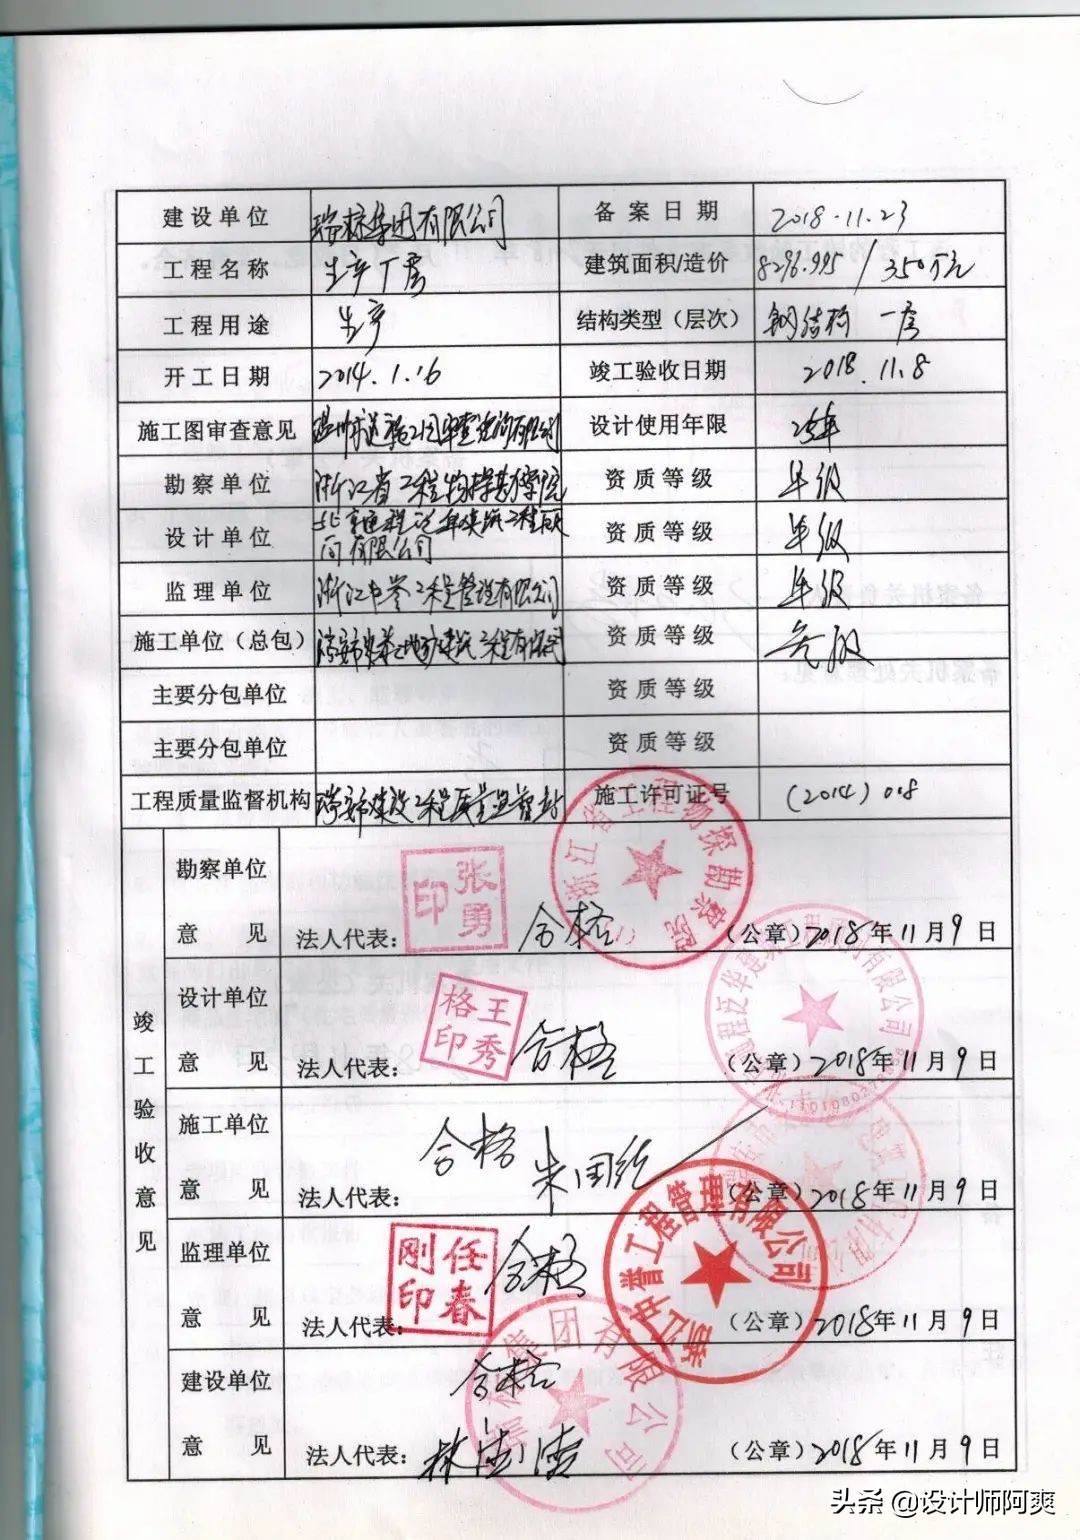 建设单位 瑞标集团有限公司 备案日期 2018.11.23
工程名称 生产厂房 建筑面积/造价 8296.995 / 350万元
工程用途 生产 结构类型（层次） 钢结构 一层
开工日期 2014.1.16 竣工验收日期 2018.11.8
施工图审查意见 设计使用年限 25年
勘察单位 浙江省工程物探勘察院 资质等级 甲级
设计单位 资质等级 甲级
有限公司
监理单位 浙江中誉工程管理有限公司 资质等级 甲级
施工单位（总包） 建筑工程有限公司 资质等级
主要分包单位 资质等级
主要分包单位 资质等级
工程质量监督机构 瑞安市建设工程质量监督站 施工许可证号 (2014) 018
竣工验收意见
勘察单位
意见 法人代表： 张勇印 合格 （公章）2018年11月9日
浙江省工程物探勘察院 (1)
设计单位
意见 法人代表： 王秀格印 合格 （公章）2018年11月9日
施工单位
意见 法人代表： 合格 （公章）2018年11月9日
监理单位
意见 法人代表： 任春刚印 合格 （公章）2018年11月9日
浙江中誉工程管理有限公司
建设单位
意见 法人代表： 合格 （公章）2018年11月9日
集团有限公司
头条 @设计师阿爽